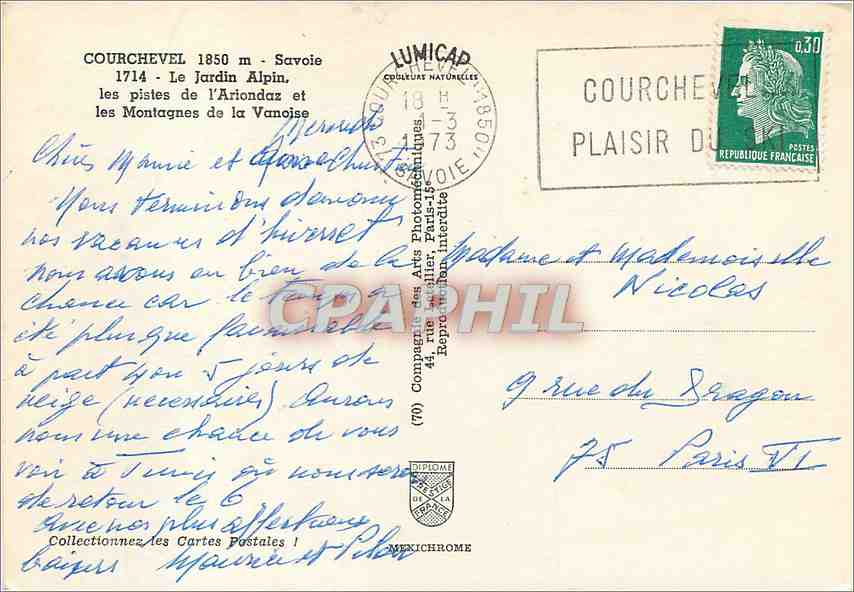 COURCHEVEL 1850 m - Savoie
1714 - Le Jardin Alpin,
les pistes de l'Ariondaz et
les Montagnes de la Vanoise
LUMICAP
COULEURS NATURELLES
73 COURCHEVEL 1850
18 H
1-3
1973
SAVOIE
COURCHEVEL
PLAISIR DU SKI
0,30
POSTES
REPUBLIQUE FRANÇAISE
Mercredi
Chères Mamie et Christine
Nous terminons
nos vacances d'hiver et
nous avons eu bien de la
chance car le temps a
été plus que favorable
à part 4 ou 5 jours de
neige (nécessaires) Aurons
nous une chance de vous
voir à Tunis où nous serons
de retour le 6
Avec nos plus affectueux
baisers Maurice et
Collectionnez les Cartes Postales !
(70) Compagnie des Arts Photomécaniques
44, rue Letellier, Paris-15e
Reproduction interdite
CPAPHIL
Madame et Mademoiselle
Nicolas
9 rue du Dragon
75 Paris VI
DIPLOME
PRESTIGE
DE LA
FRANCE
MEXICHROME